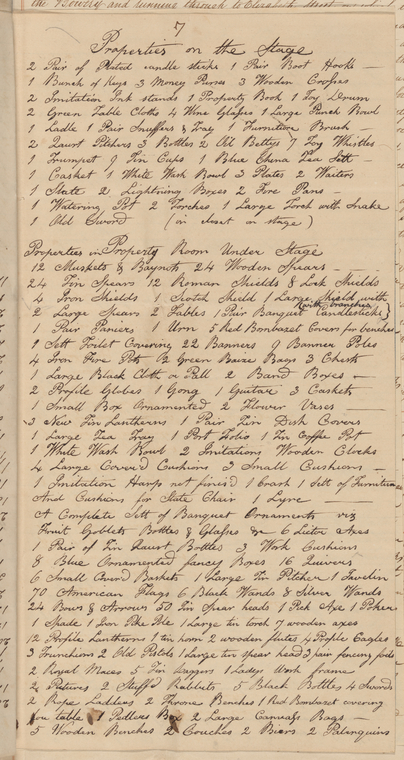 the Bowery and running through to Elizabeth Street
7
Properties on the Stage
2 Pair of Plated candle sticks 1 Pair Boot Hooks —
1 Bunch of Keys 3 Money Purses 3 Wooden Coffins
2 Imitation Ink stands 1 Property Book 1 Toy Drum
2 Green Table Cloths 4 Wine Glasses 1 Large Punch Bowl
1 Ladle 1 Pair Snuffers & Tray 1 Furniture Brush —
2 Quart Pitchers 3 Bottles 2 Old Bettys 7 Toy Whistles —
1 Trumpet 9 Tin Cups 1 Blue China Tea Sett —
1 Casket 1 White Wash Bowl 3 Plates 2 Waiters
1 Skate 2 Lightning Boxes 2 Fire Pans —
1 Watering Pot 2 Torches 1 Large Torch with Snake
1 Old Sword (in closet on stage)
Properties in Property Room Under Stage
12 Muskets & Baynots 24 Wooden Spears —
24 Tin Spears 12 Roman Shields & Lock Shields
4 Iron Shields 1 Scotch Shield 1 Large Shield with
2 Large Spears 2 Tables 1 Pair Banquet Candlesticks (with branches)
1 Pair Paniers 1 Urn 5 Red Bombazet Covers for benches
1 Sett Toilet Covering 22 Banners 9 Banner Poles
4 Iron Fire Pots 2 Green Baize Bags 3 Chests
1 Large Black Cloth or Pall 2 Band Boxes —
2 Profile Globes 1 Gong 1 Guitar 3 Caskets
1 Small Box Ornamented 2 Flower Vases —
3 New Tin Lantherns 1 Pair Tin Dish Covers
1 Large Tea Tray 1 Port Folio 1 Tin Coffee Pot
1 White Wash Bowl 2 Imitations Wooden Clocks
4 Large Cover'd Cushions 3 Small Cushions —
1 Imitation Harp not finis'd 1 Coach 1 Sett of Furniture
And Cushions for State Chair 1 Lyre —
A Complete Sett of Banquet Ornaments viz
Fruit Goblets Bottles & Glasses &c 6 Lictor Axes
1 Pair of Tin Quart Bottles 3 Work Cushions
8 Blue Ornamented fancy Boxes 16 Quivers
6 Small Round Baskets 1 Large Tin Pitcher 1 Javelin
70 American Flags 6 Black Wands 8 Silver Wands
24 Bows & Arrows 50 Tin Spear heads 1 Pick Axe 1 Poker
1 Spade 1 Iron Pike Pole 1 Large tin torch 7 wooden axes
12 Profile Lantherns 1 tin horn 2 wooden flutes 4 Profile Eagles
3 Trunchions 2 Old Pistols 1 Large tin spear head 3 pair fencing foils
2 Royal Maces 5 Tin Daggers 1 Ladys Work frame
4 Pictures 2 Stuff'd Rabbits 5 Black Bottles 4 Swords
2 Rope Ladders 2 Throne Benches 1 Red Bombazet covering
for table 1 Pedlers Box 2 Large Canvass Bags —
5 Wooden Benches 2 Couches 2 Biers 2 Palinquins